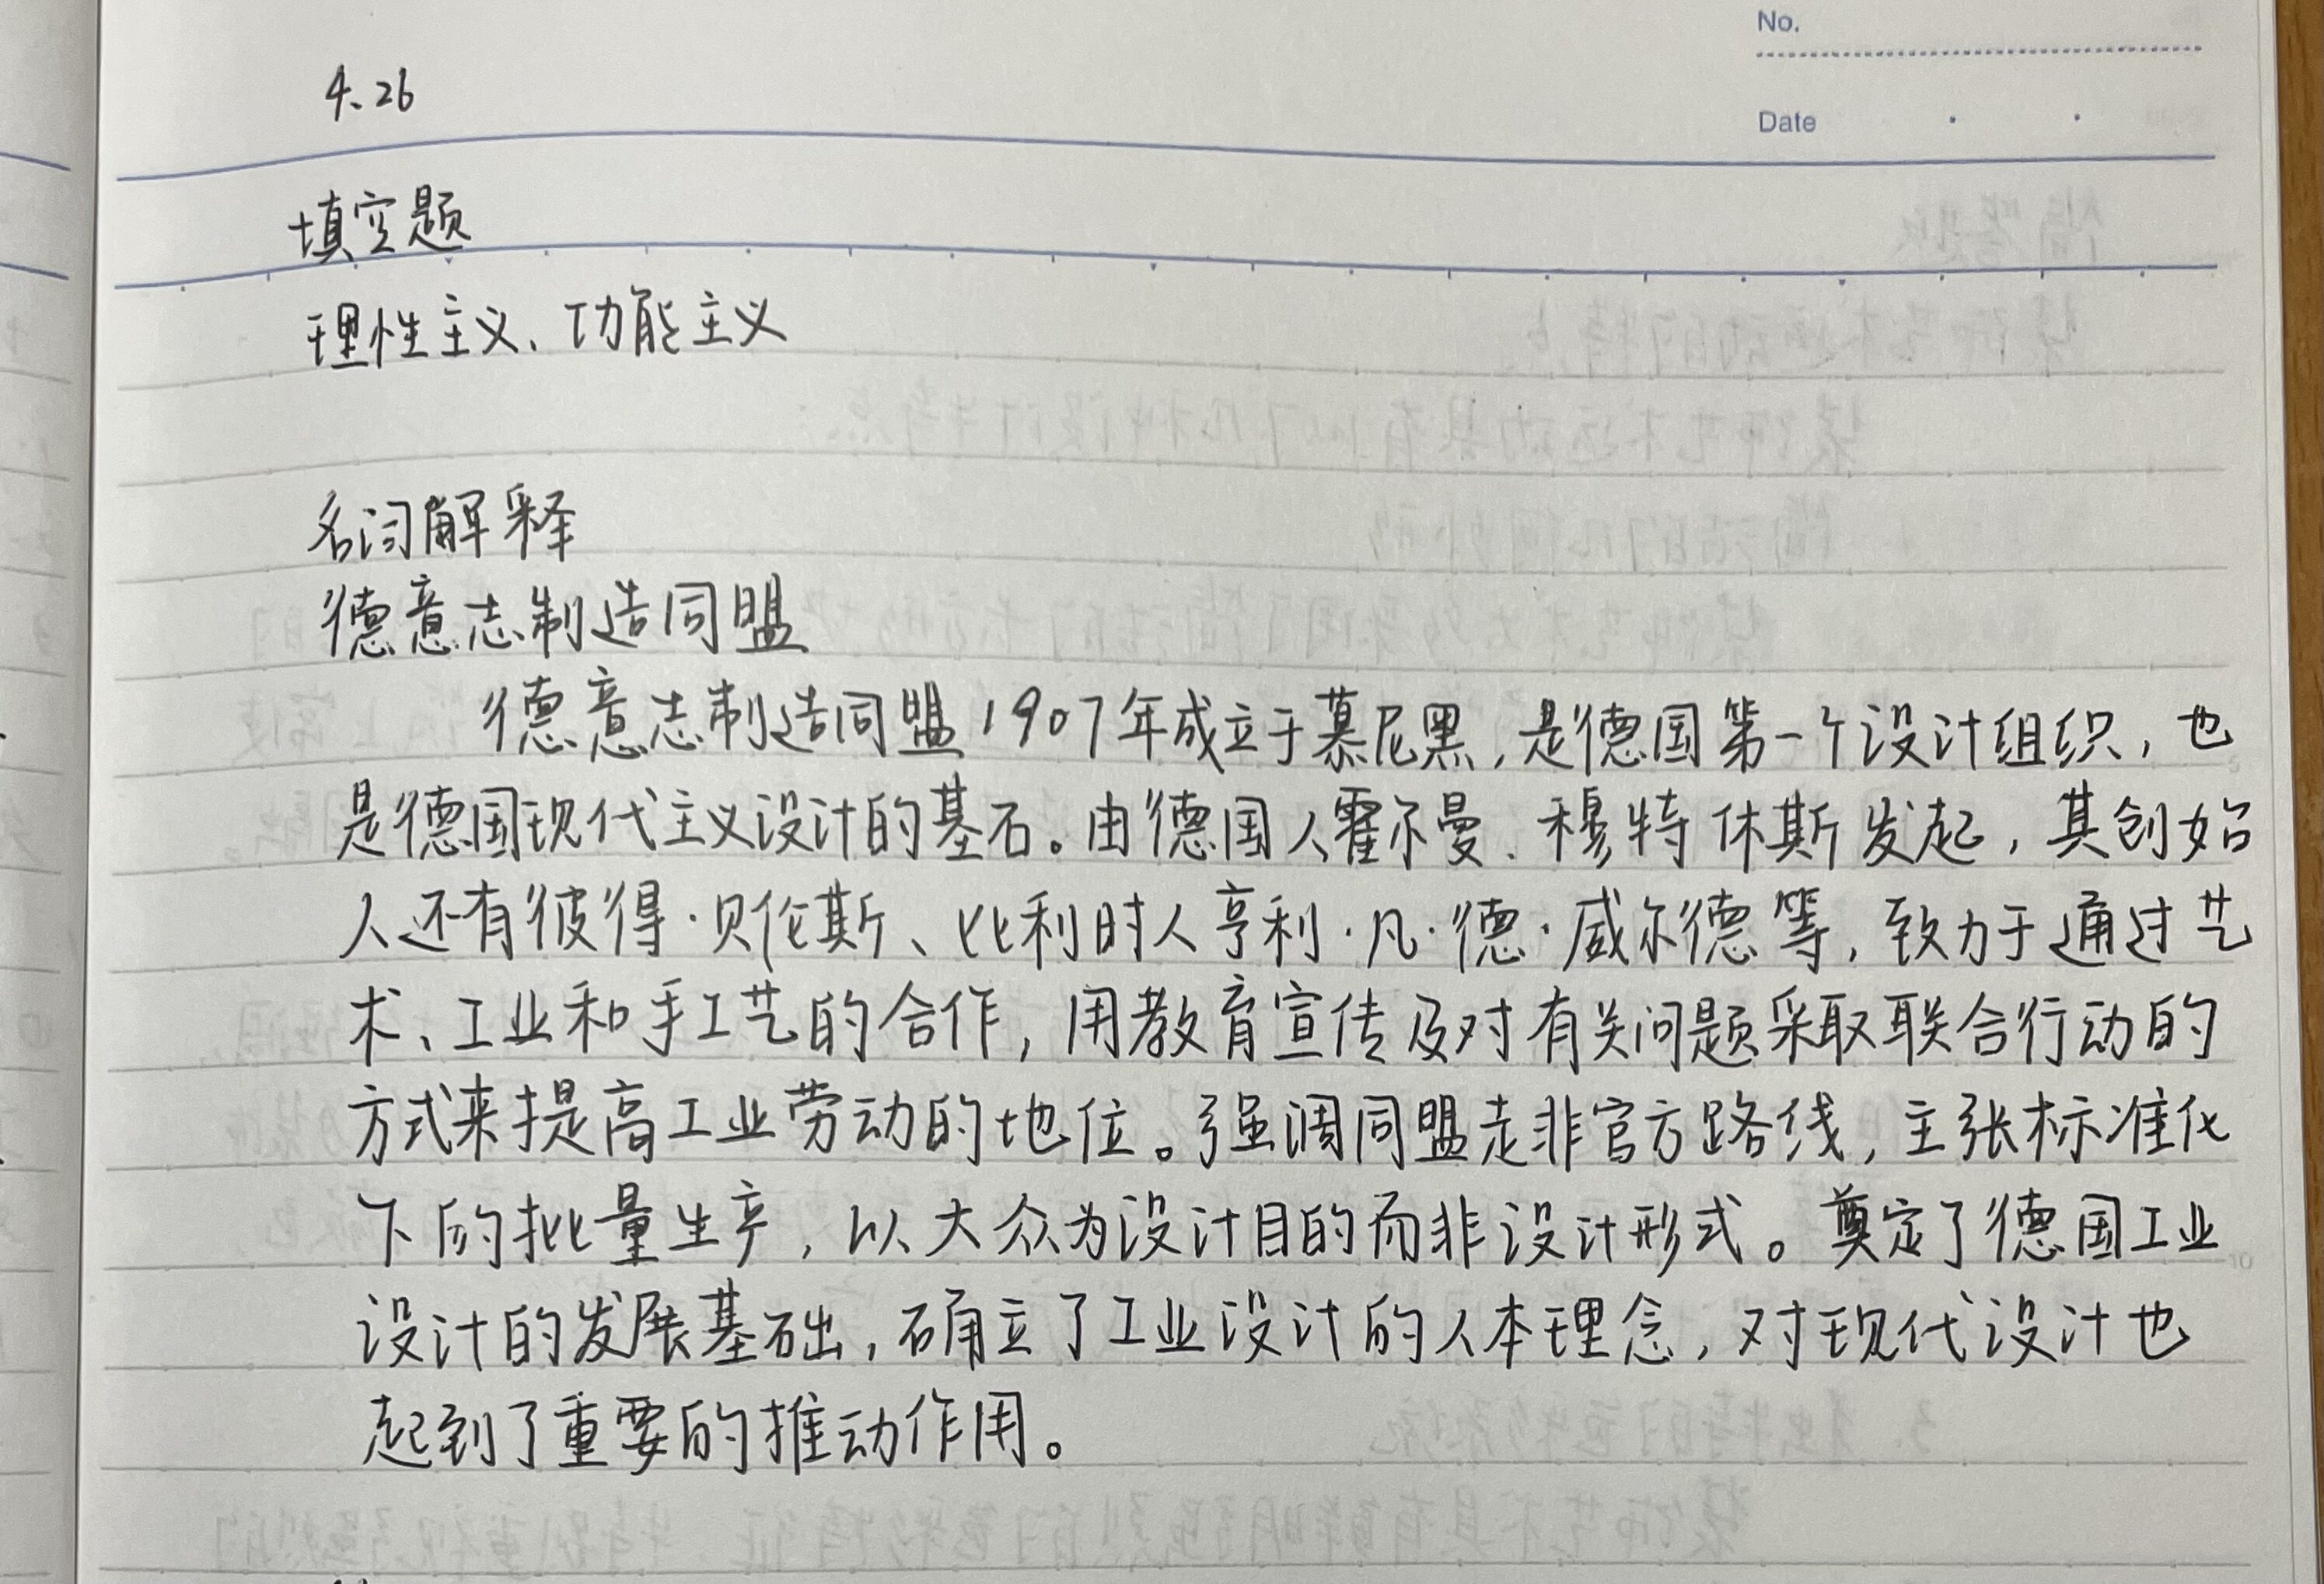 No.
4、26
Date
填空题
理性主义、功能主义
名词解释
德意志制造同盟
德意志制造同盟1907年成立于慕尼黑，是德国第一个设计组织，也
是德国现代主义设计的基石。由德国人霍尔曼、穆特休斯发起，其创始
人还有彼得·贝伦斯、比利时人亨利·凡·德·威尔德等，致力于通过艺
术、工业和手工艺的合作，用教育宣传及对有关问题采取联合行动的
方式来提高工业劳动的地位。强调同盟走非官方路线，主张标准化
下的批量生产，以大众为设计目的而非设计形式。奠定了德国工业
设计的发展基础，确立了工业设计的人本理念，对现代设计也
起到了重要的推动作用。